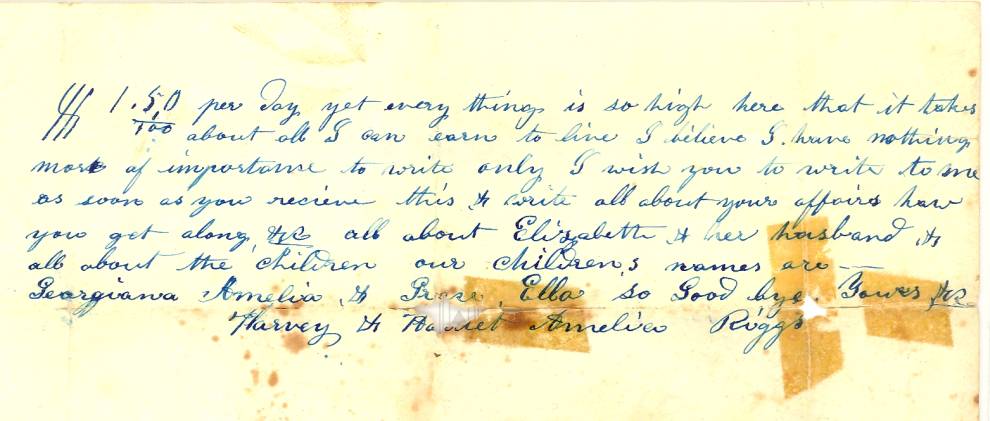 $ 1.50/100 per day yet every thing is so high here that it takes
about all I can earn to live I believe I have nothing
more of importance to write only I wish you to write to me
as soon as you recieve this & write all about your affairs how
you get along, &c all about Elizabeth & her husband &
all about the children our children,s names are —
Georgiana Amelia, & Ella so Good bye. Yours &c
Harvey & Harriet Amelia Riggs